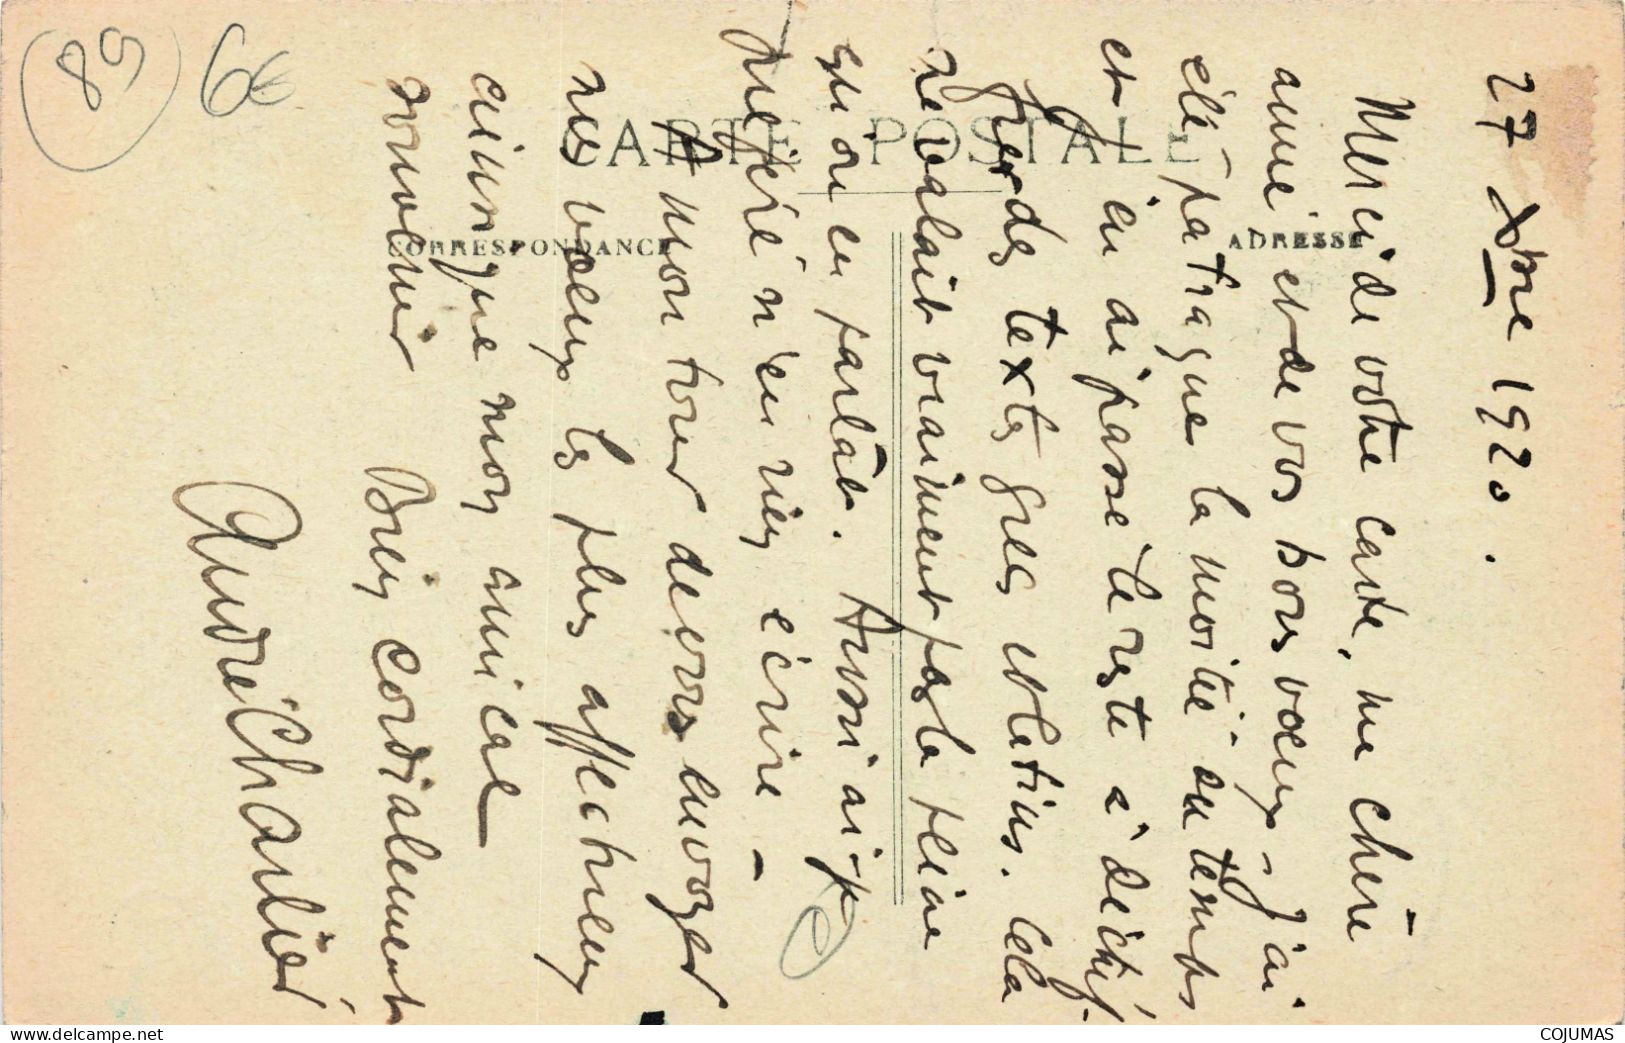 27 Xbre 1920.
Merci de votre carte, ma chère
amie et de vos bons vœux - J'ai
été patraque la moitié du temps
et j'en ai passé le reste à déchif-
frer des textes grecs et latins. Cela
ne valait vraiment pas la peine
qu'on en parlât. Aussi ai-je
préféré n'en rien écrire -
A mon tour de vous envoyer
mes vœux les plus affectueux
ainsi que mon amical
souvenir Bien cordialement
André Charlier
CARTE POSTALE
CORRESPONDANCE
ADRESSE
58
www.delcampe.net
COJUMAS